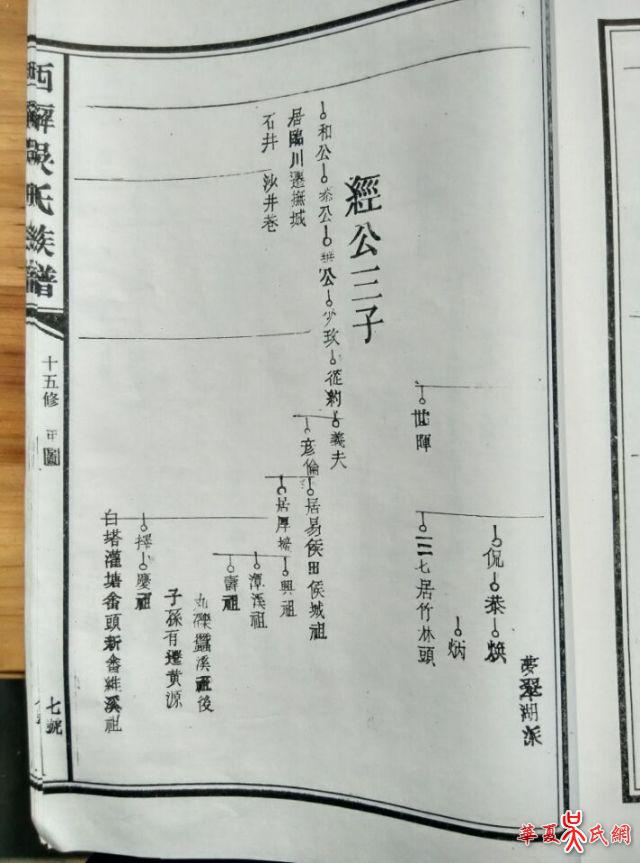 西源吳氏族譜
十五修
圖
七號
經公三子
夢翠湖派
侃
恭
煥
炳
世暉
一二七居竹林頭
和公
公
公
少玫
從約
義夫
居臨川遷撫城
石井
沙井巷
彥倫
居易俟田俟城祖
居厚
興祖
潭溪祖
壽祖
溪祖後
子孫有遷黄源
擇
慶祖
白塔灌塘畬頭新畬維溪祖
華夏吳氏網